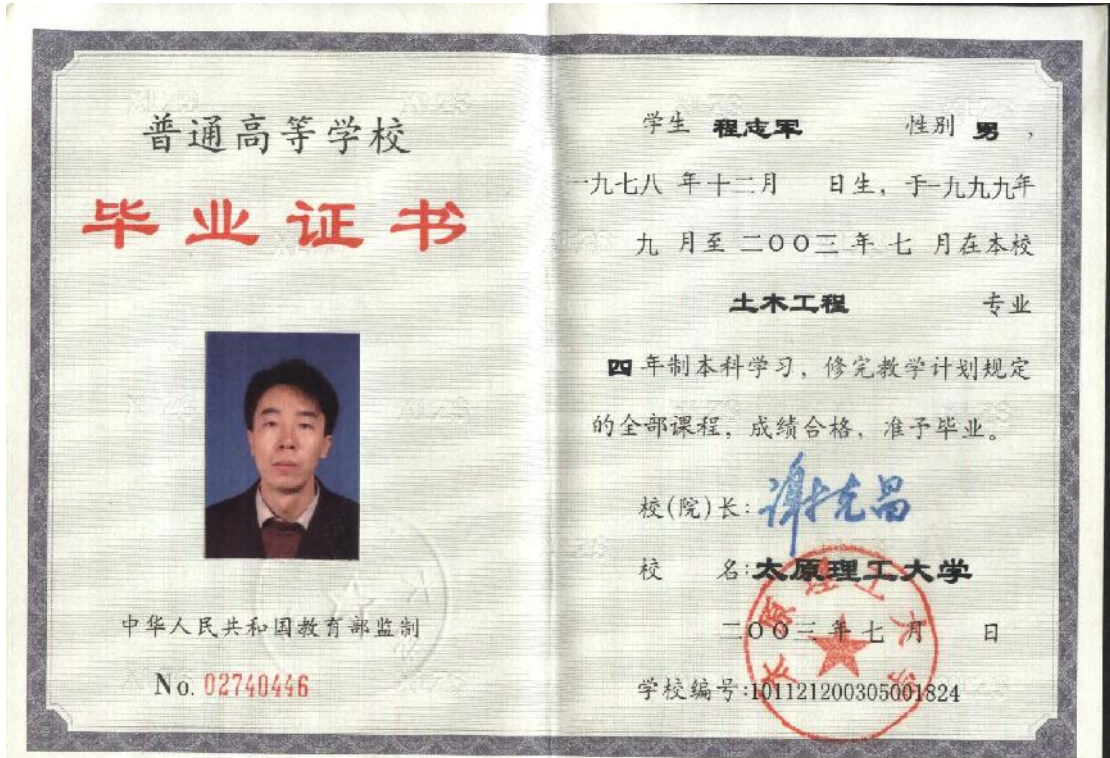 普通高等学校
毕业证书
中华人民共和国教育部监制
No. 02740446
学生 程志军 性别 男,
一九七八 年十二月 日生,于一九九九年
九 月至 二〇〇三 年 七 月在本校
土木工程 专业
四 年制本科学习,修完教学计划规定
的全部课程,成绩合格,准予毕业。
校(院)长:谢克昌
校 名:太原理工大学
二〇〇三年七月 日
学校编号:101121200305001824
太原理工大学